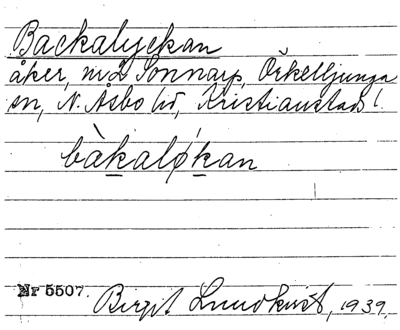 Backalyckan
åker, nr 2 Sonnarp, Örkelljunga
sn, N. Åsbo hd, Kristianstads l.
bàkaløkan
Nr 5507. Birgit Lundkvist, 1939.